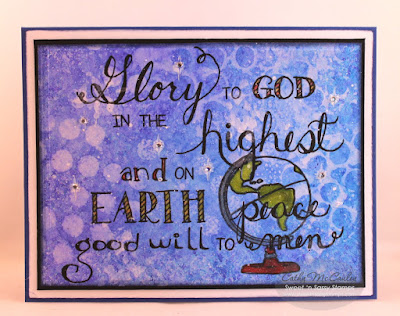 Glory TO GOD
IN THE
highest
and ON
EARTH peace
good will TO men
Sweet 'n Sassy Stamps